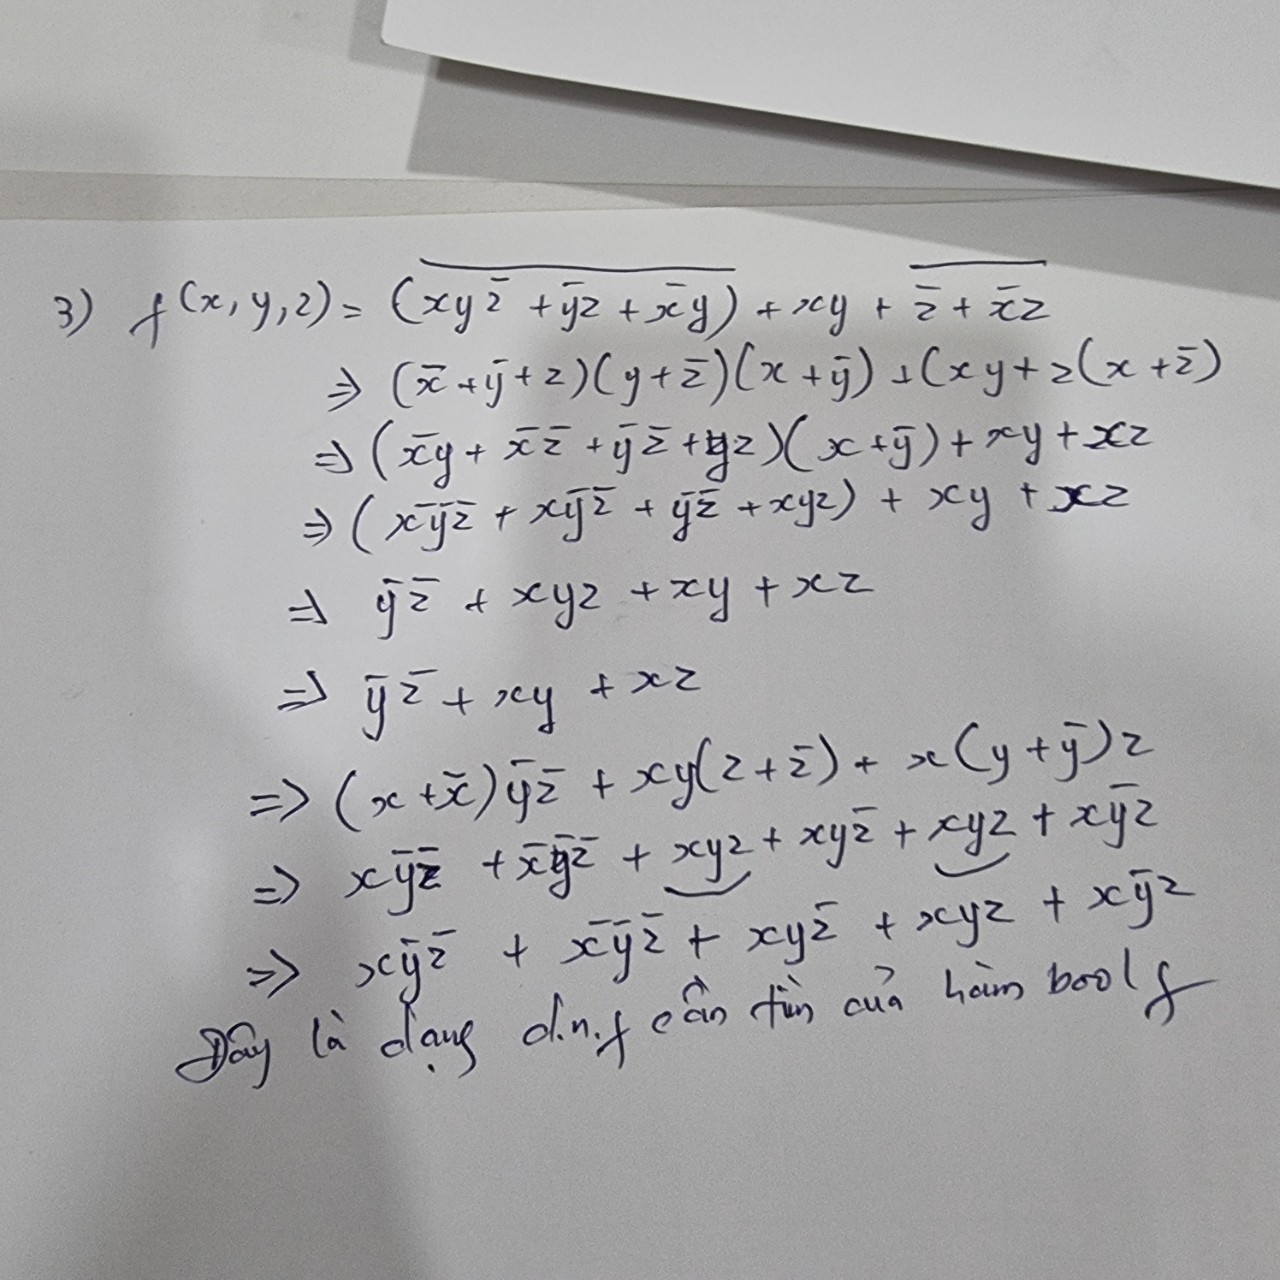 3) f(x, y, z) = \overline{(xyz̄ + ȳz + x̄y)} + xy + \overline{z̄ + x̄z}
⇒ (x̄ + ȳ + z)(y + z̄)(x + ȳ) + (xy + z(x + z̄)
⇒ (x̄y + x̄z̄ + ȳz̄ + yz)(x + ȳ) + xy + xz
⇒ (x̄ȳz̄ + xȳz̄ + ȳz̄ + xyz) + xy + xz
⇒ ȳz̄ + xyz + xy + xz
⇒ ȳz̄ + xy + xz
=> (x + x̄)ȳz̄ + xy(z + z̄) + x(y + ȳ)z
=> xȳz̄ + x̄ȳz̄ + xyz + xyz̄ + xyz + xȳz
=> xȳz̄ + x̄ȳz̄ + xyz̄ + xyz + xȳz
Đây là dạng d.n.f cần tìm của hàm bool f